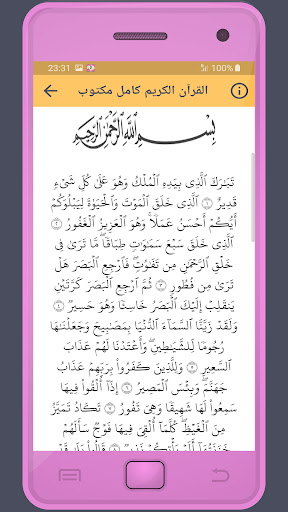 23:31
100%
القرآن الكريم كامل مكتوب
بِسْمِ ٱللَّهِ ٱلرَّحْمَٰنِ ٱلرَّحِيمِ
تَبَٰرَكَ ٱلَّذِى بِيَدِهِ ٱلْمُلْكُ وَهُوَ عَلَىٰ كُلِّ شَىْءٍ
قَدِيرٌ ۝١ ٱلَّذِى خَلَقَ ٱلْمَوْتَ وَٱلْحَيَوٰةَ لِيَبْلُوَكُمْ
أَيُّكُمْ أَحْسَنُ عَمَلًا ۚ وَهُوَ ٱلْعَزِيزُ ٱلْغَفُورُ ۝٢
ٱلَّذِى خَلَقَ سَبْعَ سَمَٰوَٰتٍ طِبَاقًا ۖ مَّا تَرَىٰ فِى
خَلْقِ ٱلرَّحْمَٰنِ مِن تَفَٰوُتٍ ۖ فَٱرْجِعِ ٱلْبَصَرَ هَلْ
تَرَىٰ مِن فُطُورٍ ۝٣ ثُمَّ ٱرْجِعِ ٱلْبَصَرَ كَرَّتَيْنِ
يَنقَلِبْ إِلَيْكَ ٱلْبَصَرُ خَاسِئًا وَهُوَ حَسِيرٌ ۝٤
وَلَقَدْ زَيَّنَّا ٱلسَّمَآءَ ٱلدُّنْيَا بِمَصَٰبِيحَ وَجَعَلْنَٰهَا
رُجُومًا لِّلشَّيَٰطِينِ ۖ وَأَعْتَدْنَا لَهُمْ عَذَابَ
ٱلسَّعِيرِ ۝٥ وَلِلَّذِينَ كَفَرُوا۟ بِرَبِّهِمْ عَذَابُ
جَهَنَّمَ ۖ وَبِئْسَ ٱلْمَصِيرُ ۝٦ إِذَآ أُلْقُوا۟ فِيهَا
سَمِعُوا۟ لَهَا شَهِيقًا وَهِىَ تَفُورُ ۝٧ تَكَادُ تَمَيَّزُ
مِنَ ٱلْغَيْظِ ۖ كُلَّمَآ أُلْقِىَ فِيهَا فَوْجٌ سَأَلَهُمْ
خَزَنَتُهَآ أَلَمْ يَأْتِكُمْ نَذِيرٌ ۝٨ قَالُوا۟ بَلَىٰ قَدْ